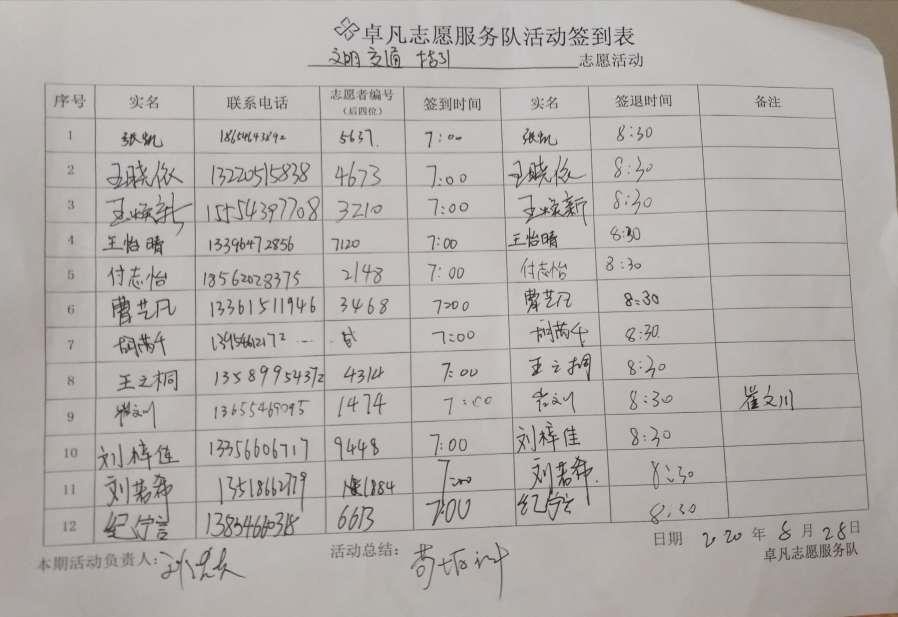 卓凡志愿服务队活动签到表
文明交通 指引 志愿活动
序号 实名 联系电话 志愿者编号（后四位） 签到时间 实名 签退时间 备注
1 张凯 18654643892 5637 7:00 张凯 8:30
2 王晓依 13220515838 4673 7:00 王晓依 8:30
3 15554397708 3210 7:00 8:30
4 王怡晴 13396472856 7120 7:00 王怡晴 8:30
5 付志怡 18562028375 2148 7:00 付志怡 8:30
6 曹艺凡 13361511946 3468 7:00 曹艺凡 8:30
7 7:00 8:30
8 王之桐 13589954372 4314 7:00 王之桐 8:30
9 崔文川 13655469095 1474 7:00 崔文川 8:30 崔文川
10 刘梓佳 13356606717 9448 7:00 刘梓佳 8:30
11 刘若希 1884 7:00 刘若希 8:30
12 6613 7:00 8:30
日期 2020 年 8 月 28 日
本期活动负责人： 活动总结：
卓凡志愿服务队